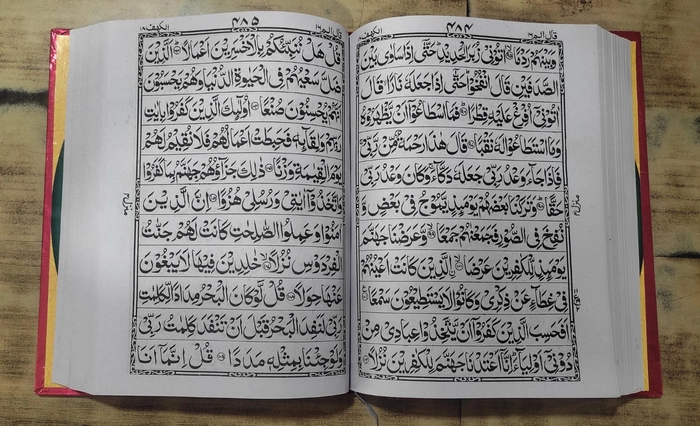 قال الم ١٦
٤٨٤
الكهف ١٨
وَبَيْنَهُمْ رَدْمًا ۙ اٰتُوْنِيْ زُبَرَ الْحَدِيْدِ ؕ حَتّٰۤى اِذَا سَاوٰى بَيْنَ
الصَّدَفَيْنِ قَالَ انْفُخُوْا ؕ حَتّٰۤى اِذَا جَعَلَهٗ نَارًا ۙ قَالَ
اٰتُوْنِيْۤ اُفْرِغْ عَلَيْهِ قِطْرًا ؕ فَمَا اسْطَاعُوْۤا اَنْ يَّظْهَرُوْهُ
وَمَا اسْتَطَاعُوْا لَهٗ نَقْبًا قَالَ هٰذَا رَحْمَةٌ مِّنْ رَّبِّيْ ۚ
فَاِذَا جَآءَ وَعْدُ رَبِّيْ جَعَلَهٗ دَكَّآءَ ۚ وَكَانَ وَعْدُ رَبِّيْ
حَقًّا ؕ وَتَرَكْنَا بَعْضَهُمْ يَوْمَئِذٍ يَّمُوْجُ فِيْ بَعْضٍ وَّ
نُفِخَ فِي الصُّوْرِ فَجَمَعْنٰهُمْ جَمْعًا ۙ وَّعَرَضْنَا جَهَنَّمَ
يَوْمَئِذٍ لِّلْكٰفِرِيْنَ عَرْضًا ۙ الَّذِيْنَ كَانَتْ اَعْيُنُهُمْ
فِيْ غِطَآءٍ عَنْ ذِكْرِيْ وَكَانُوْا لَا يَسْتَطِيْعُوْنَ سَمْعًا
اَفَحَسِبَ الَّذِيْنَ كَفَرُوْۤا اَنْ يَّتَّخِذُوْا عِبَادِيْ مِنْ
دُوْنِيْۤ اَوْلِيَآءَ ؕ اِنَّاۤ اَعْتَدْنَا جَهَنَّمَ لِلْكٰفِرِيْنَ نُزُلًا
قال الم ١٦
٤٨٥
الكهف ١٨
قُلْ هَلْ نُنَبِّئُكُمْ بِالْاَخْسَرِيْنَ اَعْمَالًا ؕ اَلَّذِيْنَ
ضَلَّ سَعْيُهُمْ فِي الْحَيٰوةِ الدُّنْيَا وَهُمْ يَحْسَبُوْنَ
اَنَّهُمْ يُحْسِنُوْنَ صُنْعًا اُولٰٓئِكَ الَّذِيْنَ كَفَرُوْا بِاٰيٰتِ
رَبِّهِمْ وَلِقَآئِهٖ فَحَبِطَتْ اَعْمَالُهُمْ فَلَا نُقِيْمُ لَهُمْ
يَوْمَ الْقِيٰمَةِ وَزْنًا ذٰلِكَ جَزَآؤُهُمْ جَهَنَّمُ بِمَا كَفَرُوْا
وَاتَّخَذُوْۤا اٰيٰتِيْ وَرُسُلِيْ هُزُوًا اِنَّ الَّذِيْنَ
اٰمَنُوْا وَعَمِلُوا الصّٰلِحٰتِ كَانَتْ لَهُمْ جَنّٰتُ
الْفِرْدَوْسِ نُزُلًا ۙ خٰلِدِيْنَ فِيْهَا لَا يَبْغُوْنَ
عَنْهَا حِوَلًا قُلْ لَّوْ كَانَ الْبَحْرُ مِدَادًا لِّكَلِمٰتِ
رَبِّيْ لَنَفِدَ الْبَحْرُ قَبْلَ اَنْ تَنْفَدَ كَلِمٰتُ رَبِّيْ
وَلَوْ جِئْنَا بِمِثْلِهٖ مَدَدًا قُلْ اِنَّمَاۤ اَنَا